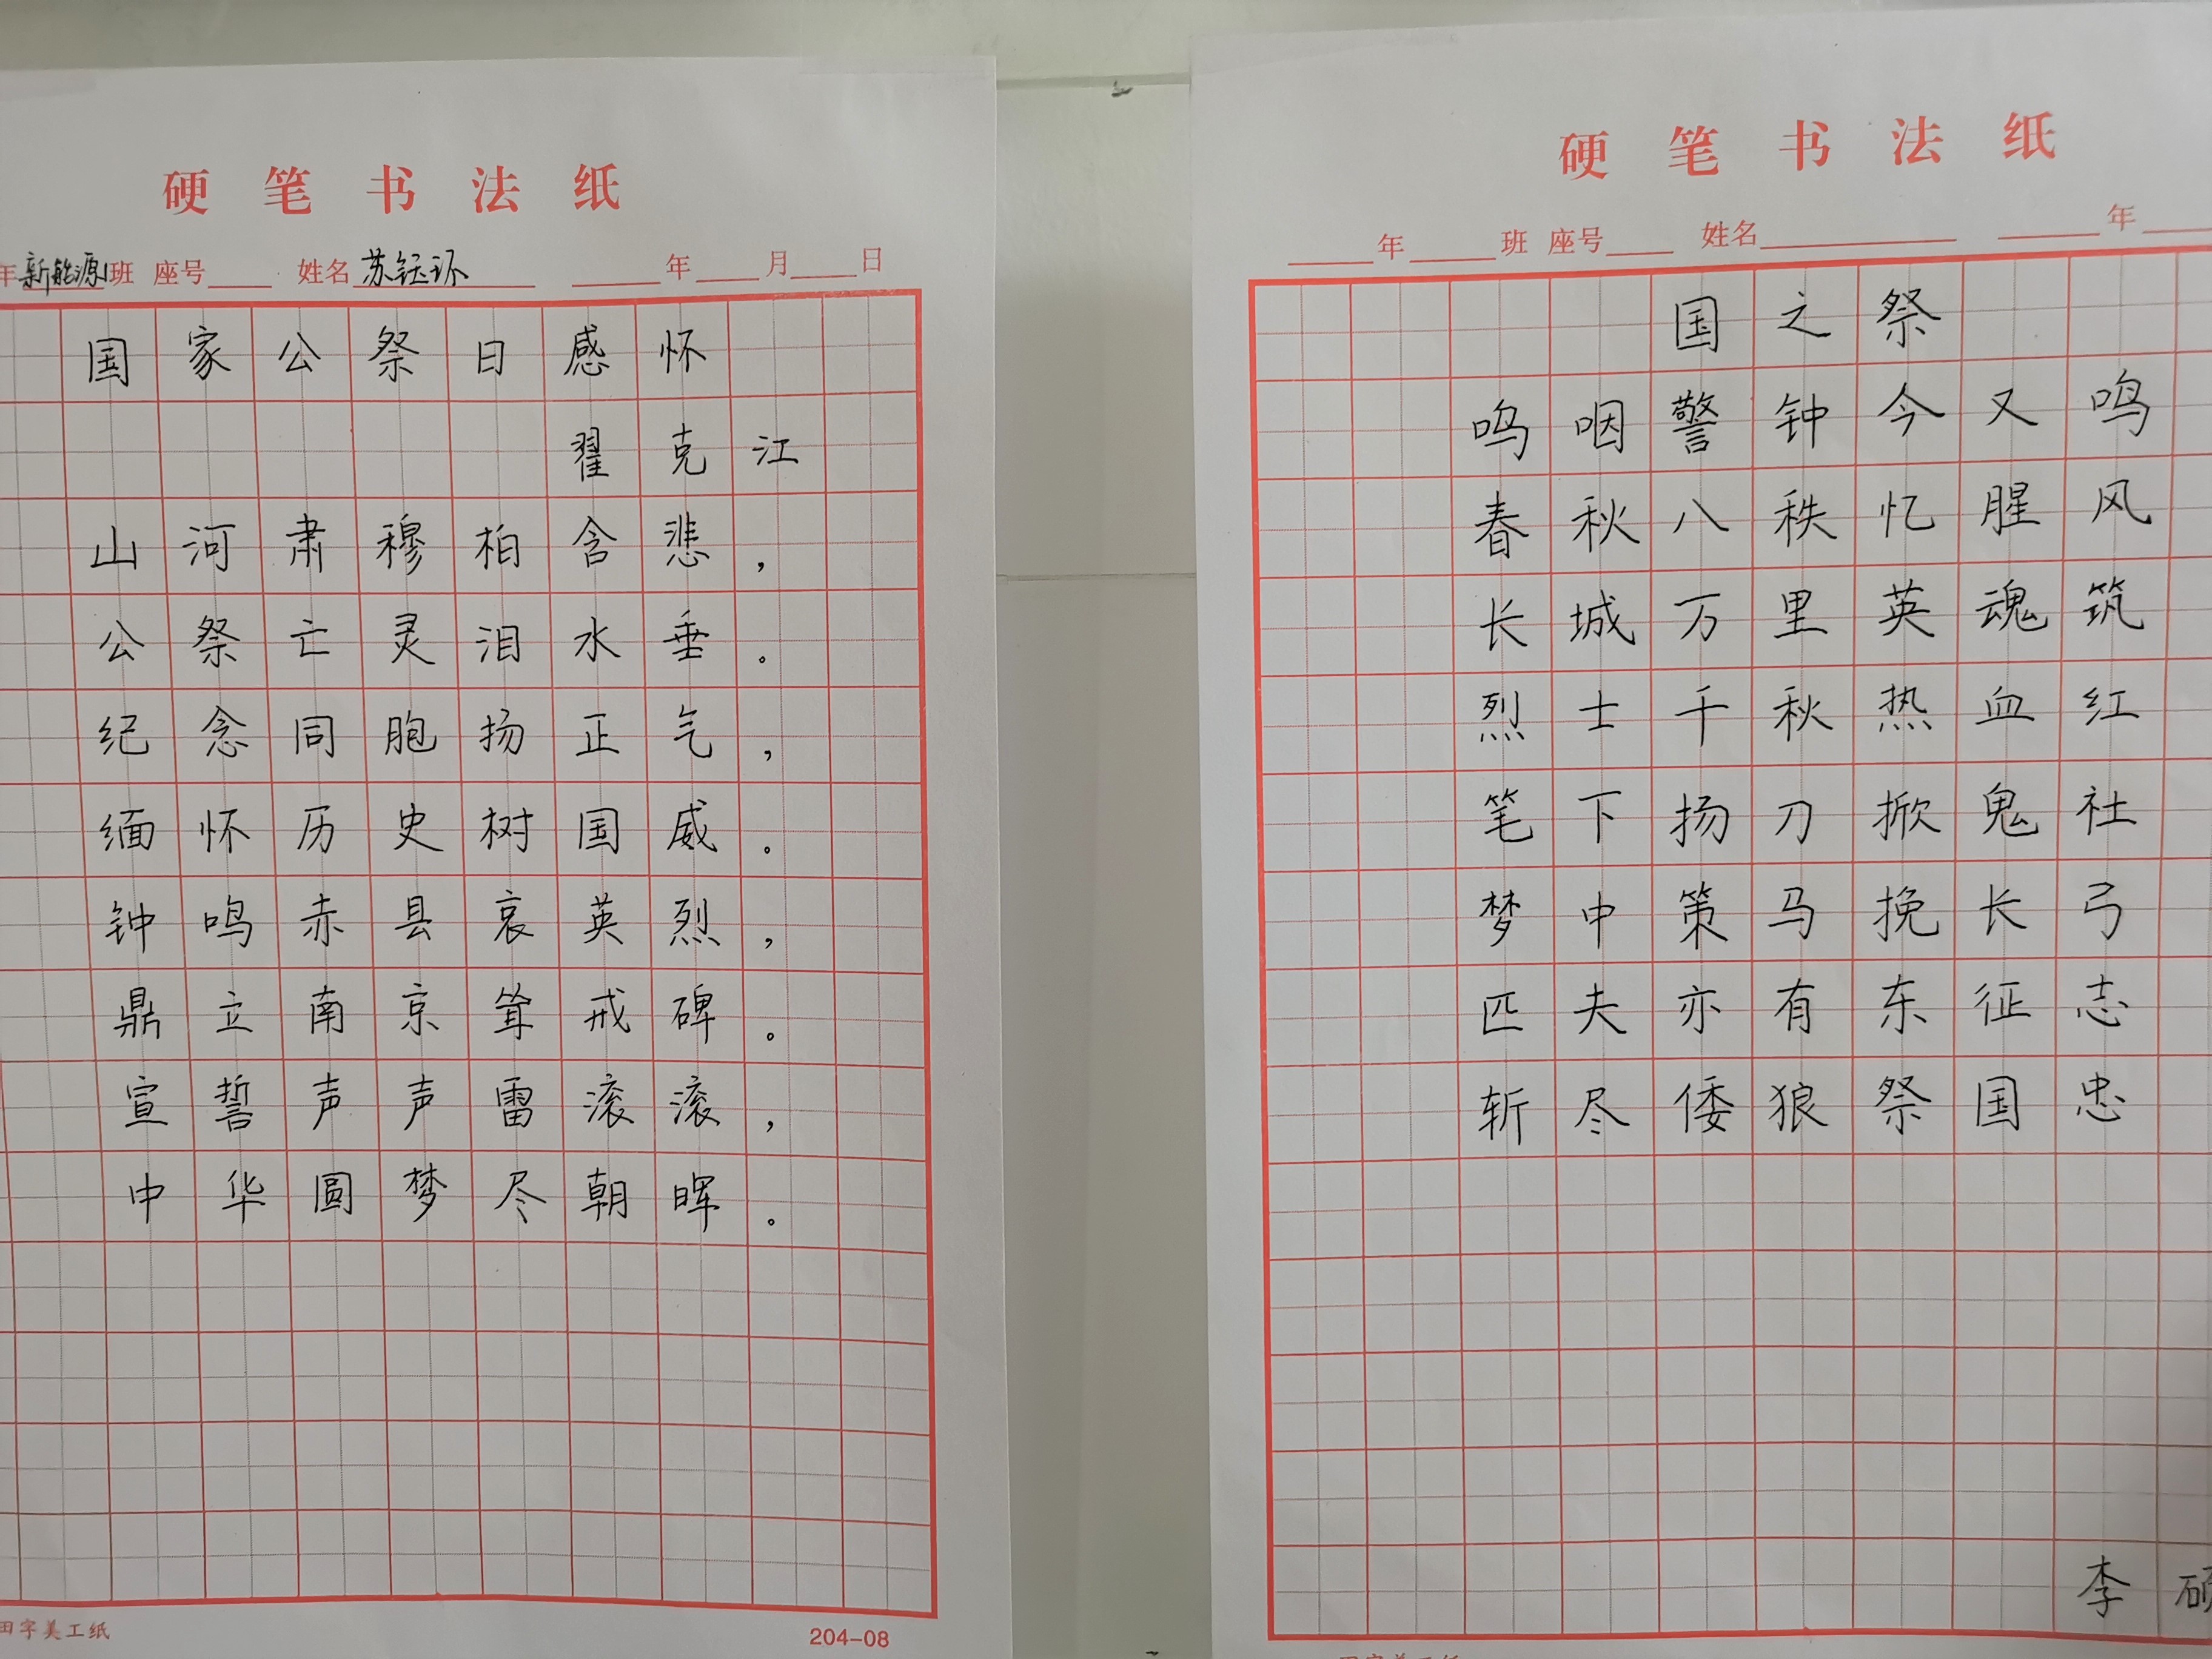 硬笔书法纸
年新能源1班 座号 姓名苏钰环 年 月 日
国家公祭日感怀
翟克江
山河肃穆柏含悲，
公祭亡灵泪水垂。
纪念同胞扬正气，
缅怀历史树国威。
钟鸣赤县哀英烈，
鼎立南京耸戒碑。
宣誓声声雷滚滚，
中华圆梦尽朝晖。
田字美工纸 204-08
硬笔书法纸
年 班 座号 姓名 年
国之祭
呜咽警钟今又鸣
春秋八秩忆腥风
长城万里英魂筑
烈士千秋热血红
笔下扬刀掀鬼社
梦中策马挽长弓
匹夫亦有东征志
斩尽倭狼祭国忠
李硕